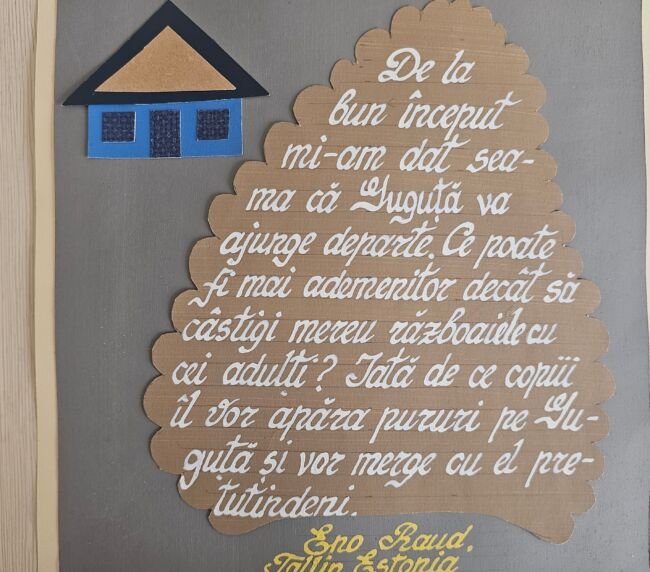 De la
bun început
mi-am dat sea-
ma că Guguță va
ajunge departe. Ce poate
fi mai ademenitor decât să
câștigi mereu războaiele cu
cei adulți? Iată de ce copiii
îl vor apăra pururi pe Gu-
guță și vor merge cu el pre-
tutindeni.
Eno Raud.
Tallin Estonia